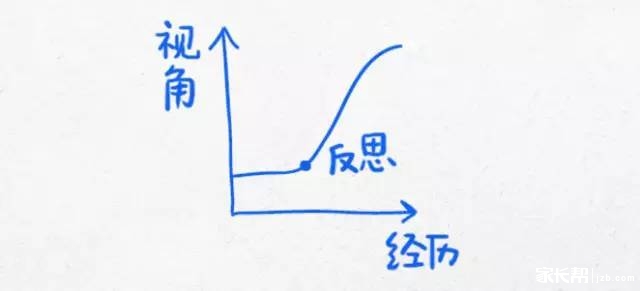 视角
反思
经历
家长帮 jzb.com